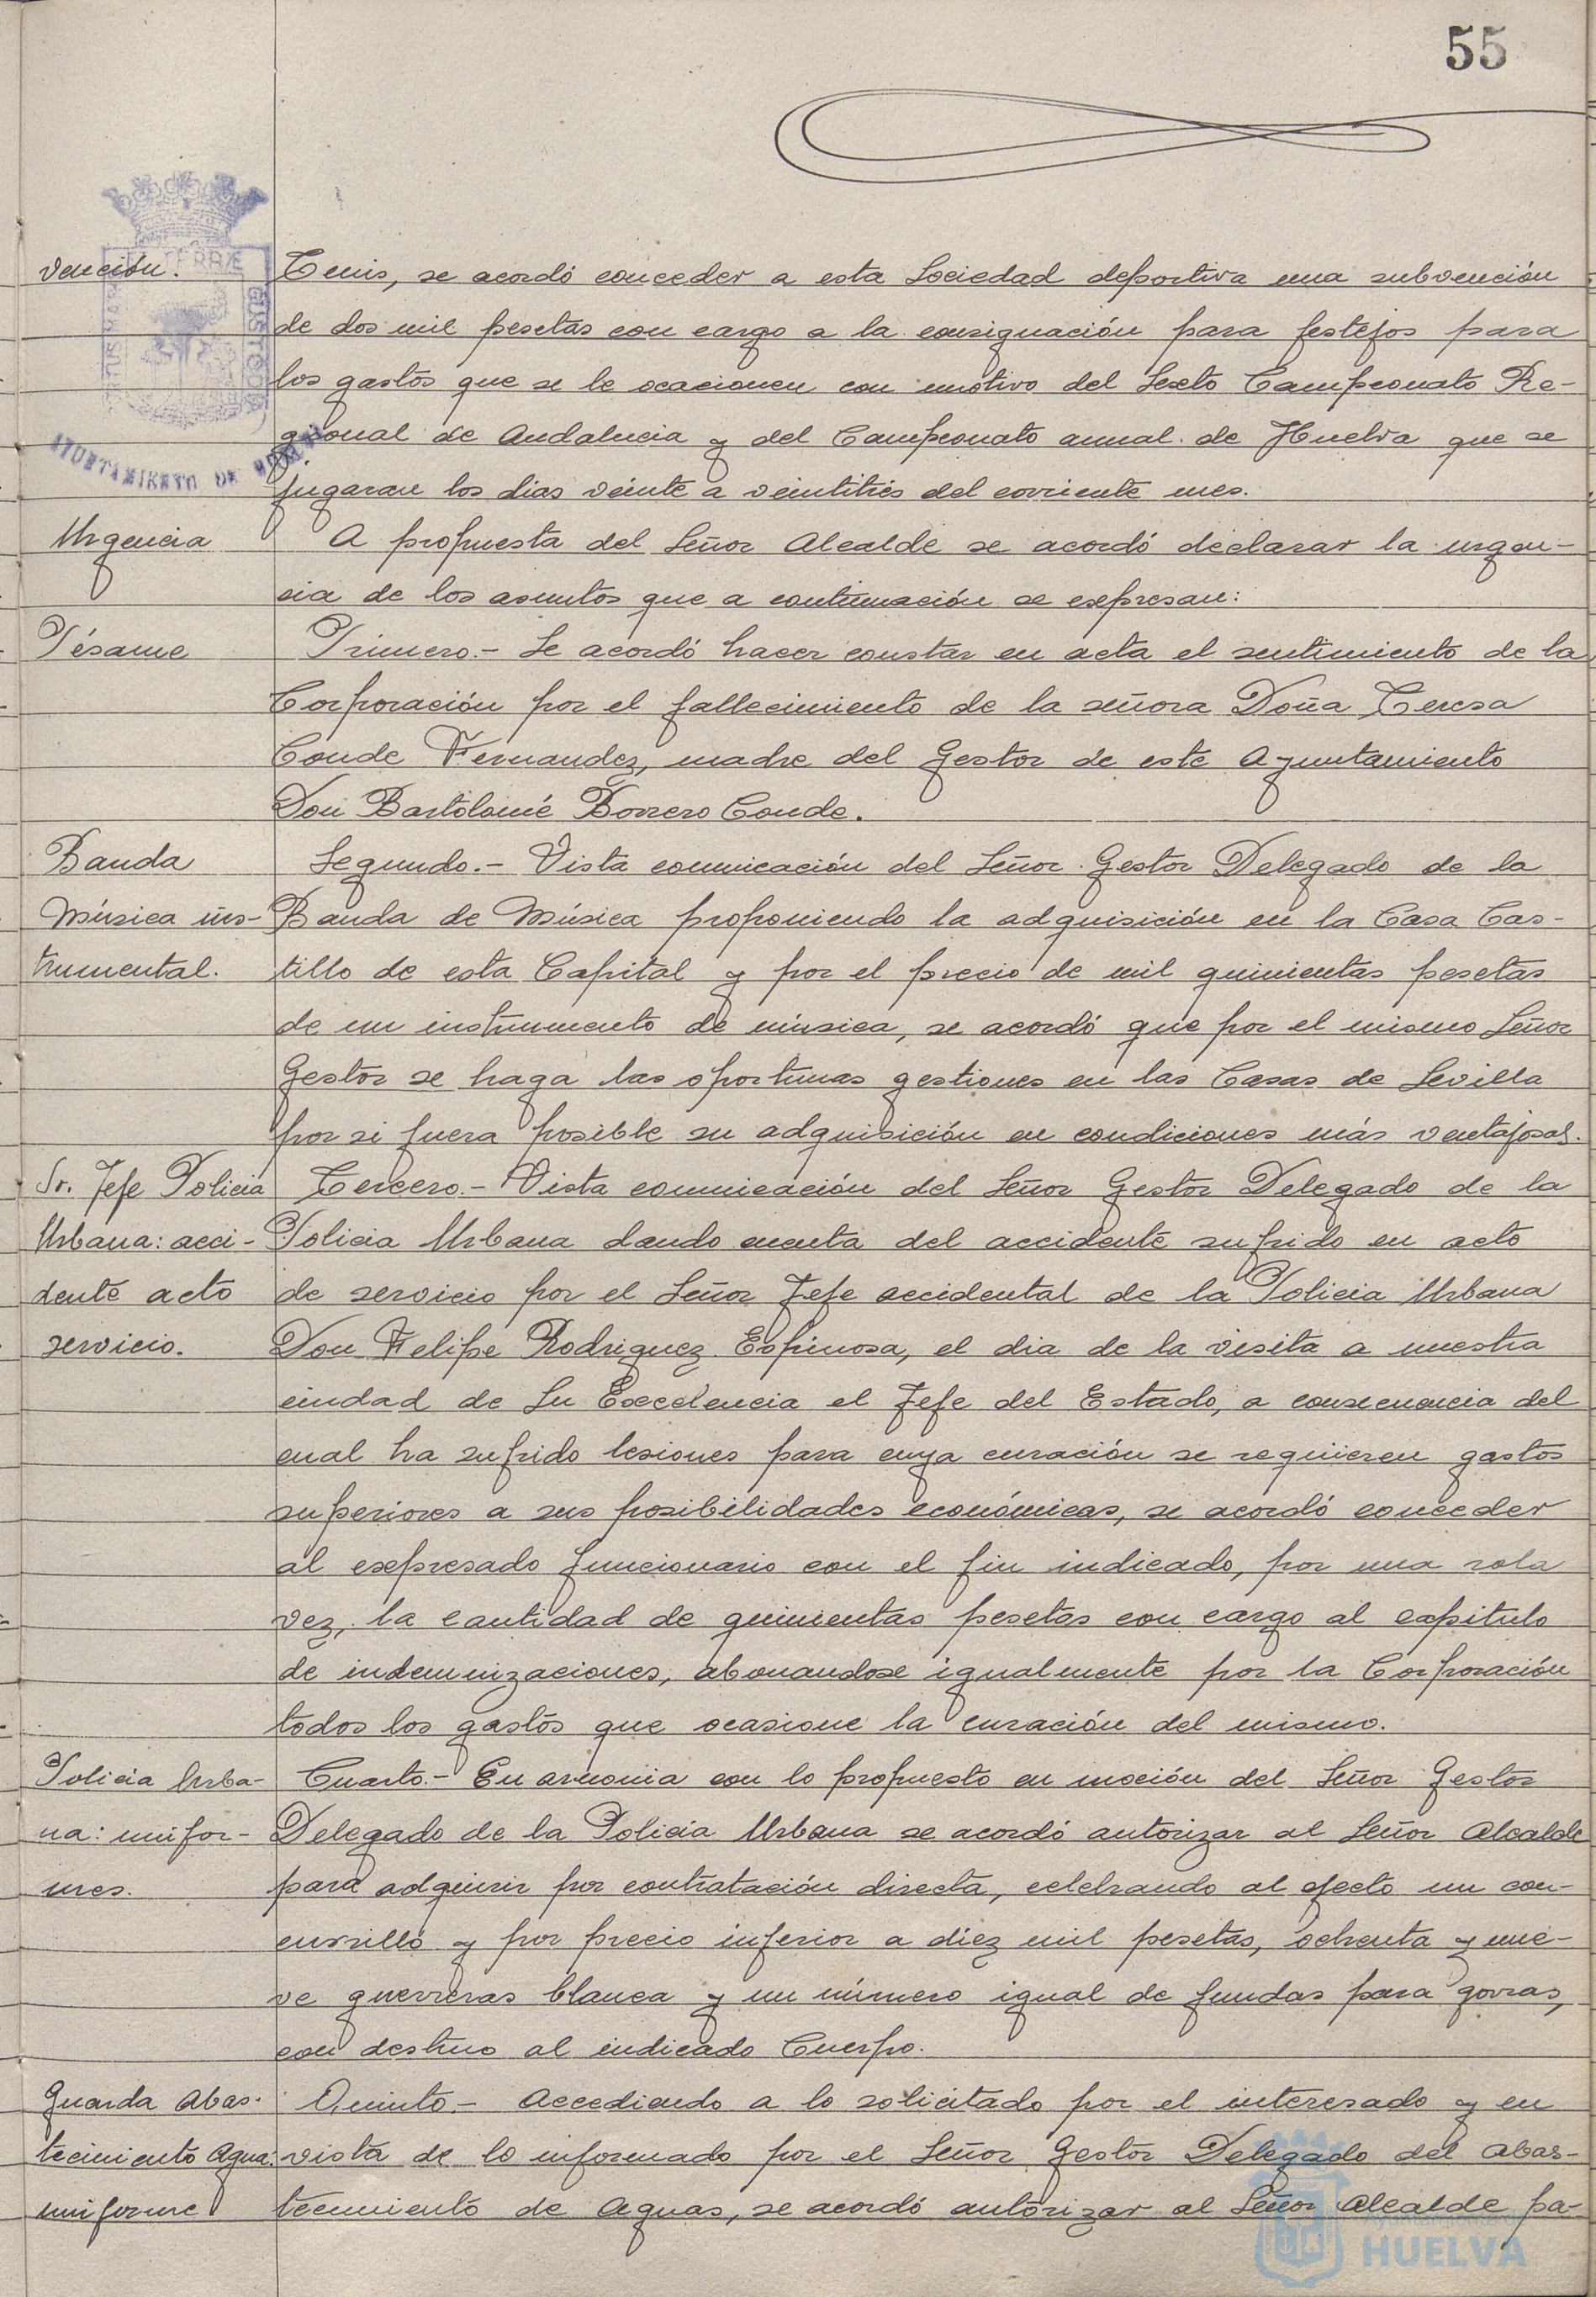 55
vención. Tenis, se acordó conceder a esta Sociedad deportiva una subvención
de dos mil pesetas con cargo a la consignación para festejos para
los gastos que se le ocacionen con motivo del Sexto Campeonato Re-
gional de Andalucia y del Campeonato annal de Huelva que se
jugaran los dias veinte a veintitrés del corriente mes.
Urgencia A propuesta del Señor Alcalde se acordó declarar la urgen-
cia de los asuntos que a continuación se expresan:
Pésame Primero.- Se acordó hacer constar en acta el sentimiento de la
Corporación por el fallecimiento de la señora Doña Teresa
Conde Fernandez, madre del Gestor de este Ayuntamiento
Don Bartolomé Borrero Conde.
Banda Segundo.- Vista comunicación del Señor Gestor Delegado de la
Música ins- Banda de Música proponiendo la adquisición en la Casa Cas-
trumental. tillo de esta Capital y por el precio de mil quinientas pesetas
de un instrumento de música, se acordó que por el mismo Señor
Gestor se haga las oportunas gestiones en las Casas de Sevilla
por si fuera posible su adquisición en condiciones más ventajosas.
Sr. Jefe Policia Tercero.- Vista comunicación del Señor Gestor Delegado de la
Urbana: acci- Policia Urbana dando cuenta del accidente sufrido en acto
dente acto de servicio por el Señor Jefe accidental de la Policia Urbana
servicio. Don Felipe Rodriguez Espinosa, el dia de la visita a nuestra
ciudad de Su Excelencia el Jefe del Estado, a consecuencia del
cual ha sufrido lesiones para cuya curación se requieren gastos
superiores a sus posibilidades económicas, se acordó conceder
al expresado funcionario con el fin indicado, por una sola
vez, la cantidad de quinientas pesetas con cargo al capitulo
de indemnizaciones, abonandose igualmente por la Corporación
todos los gastos que ocasione la curación del mismo.
Policia Urba- Cuarto.- En armonia con lo propuesto en moción del Señor Gestor
na: unifor- Delegado de la Policia Urbana se acordó autorizar al Señor Alcalde
mes. para adquirir por contratación directa, celebrando al efecto un con-
cursillo y por precio inferior a diez mil pesetas, ochenta y nue-
ve guerreras blanca y un número igual de fundas para gorras,
con destino al indicado Cuerpo.
Guarda Abas- Quinto.- Accediendo a lo solicitado por el interesado y en
tecimiento Agua: vista de lo informado por el Señor Gestor Delegado del Abas-
uniforme tecimiento de Aguas, se acordó autorizar al Señor Alcalde pa-
AYUNTAMIENTO DE HUELVA
HUELVA